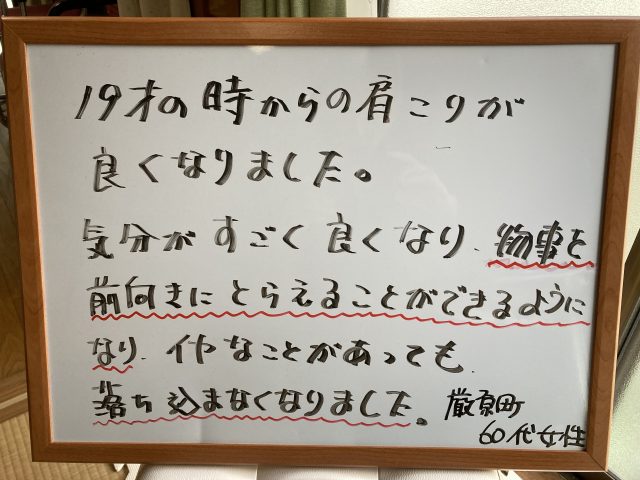 19才の時からの肩こりが
良くなりました。
気分がすごく良くなり、物事を
前向きにとらえることができるように
なり、イヤなことがあっても、
落ち込まなくなりました。厳原町
60代女性